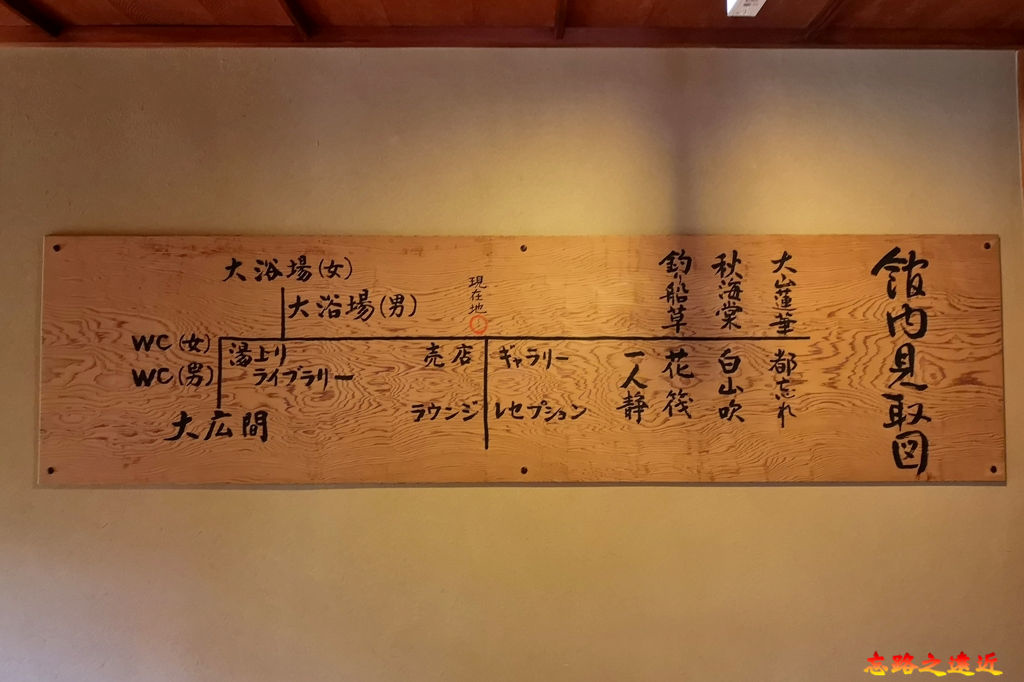 館内見取図
大山蓮華
秋海棠
釣船草
都忘れ
白山吹
花筏
一人静
現在地
ギャラリー
レセプション
売店
ラウンジ
大浴場(女)
大浴場(男)
湯上り
ライブラリー
WC(女)
WC(男)
大広間
忘路之遠近